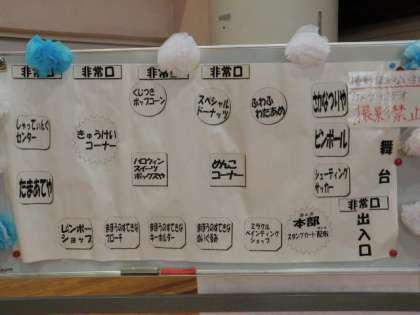 非常口
非常口
非常口
非常口
くじつき
ポップコーン
スペシャル
ドーナッツ
ふわふわ
わたあめ
さかなつりや
撮影禁止
しゃってぃんぐ
センター
きゅうけい
コーナー
ピンボール
舞台
ハロウィン
スイーツ
ボックスや
めんこ
コーナー
たまあてや
シューティング
サッカー
非常口
出入口
レインボー
ショップ
まほうのすてきな
ブローチ
まほうのすてきな
キーホルダー
まほうのすてきな
ぬいぐるみ
ミラクル
ペインティング
ショップ
本部
スタンプカード配布